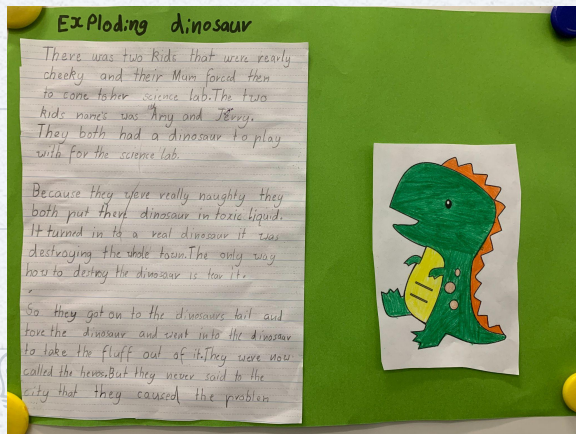 Exploding dinosaur
There was two kids that were rearly
cheeky and their Mum forced then
to come to her science lab. The two
kids name's was Amy and Jerry.
They both had a dinosaur to play
with for the science lab.
Because they were really naughty they
both put there dinosaur in toxic liquid.
It turned in to a real dinosaur it was
destroying the whole town. The only way
how to destroy the dinosaur is tear it.
So they got on to the dinosaurs tail and
tore the dinosaur and went into the dinosaur
to take the fluff out of it. They were now
called the heros. But they never said to the
city that they caused the problem